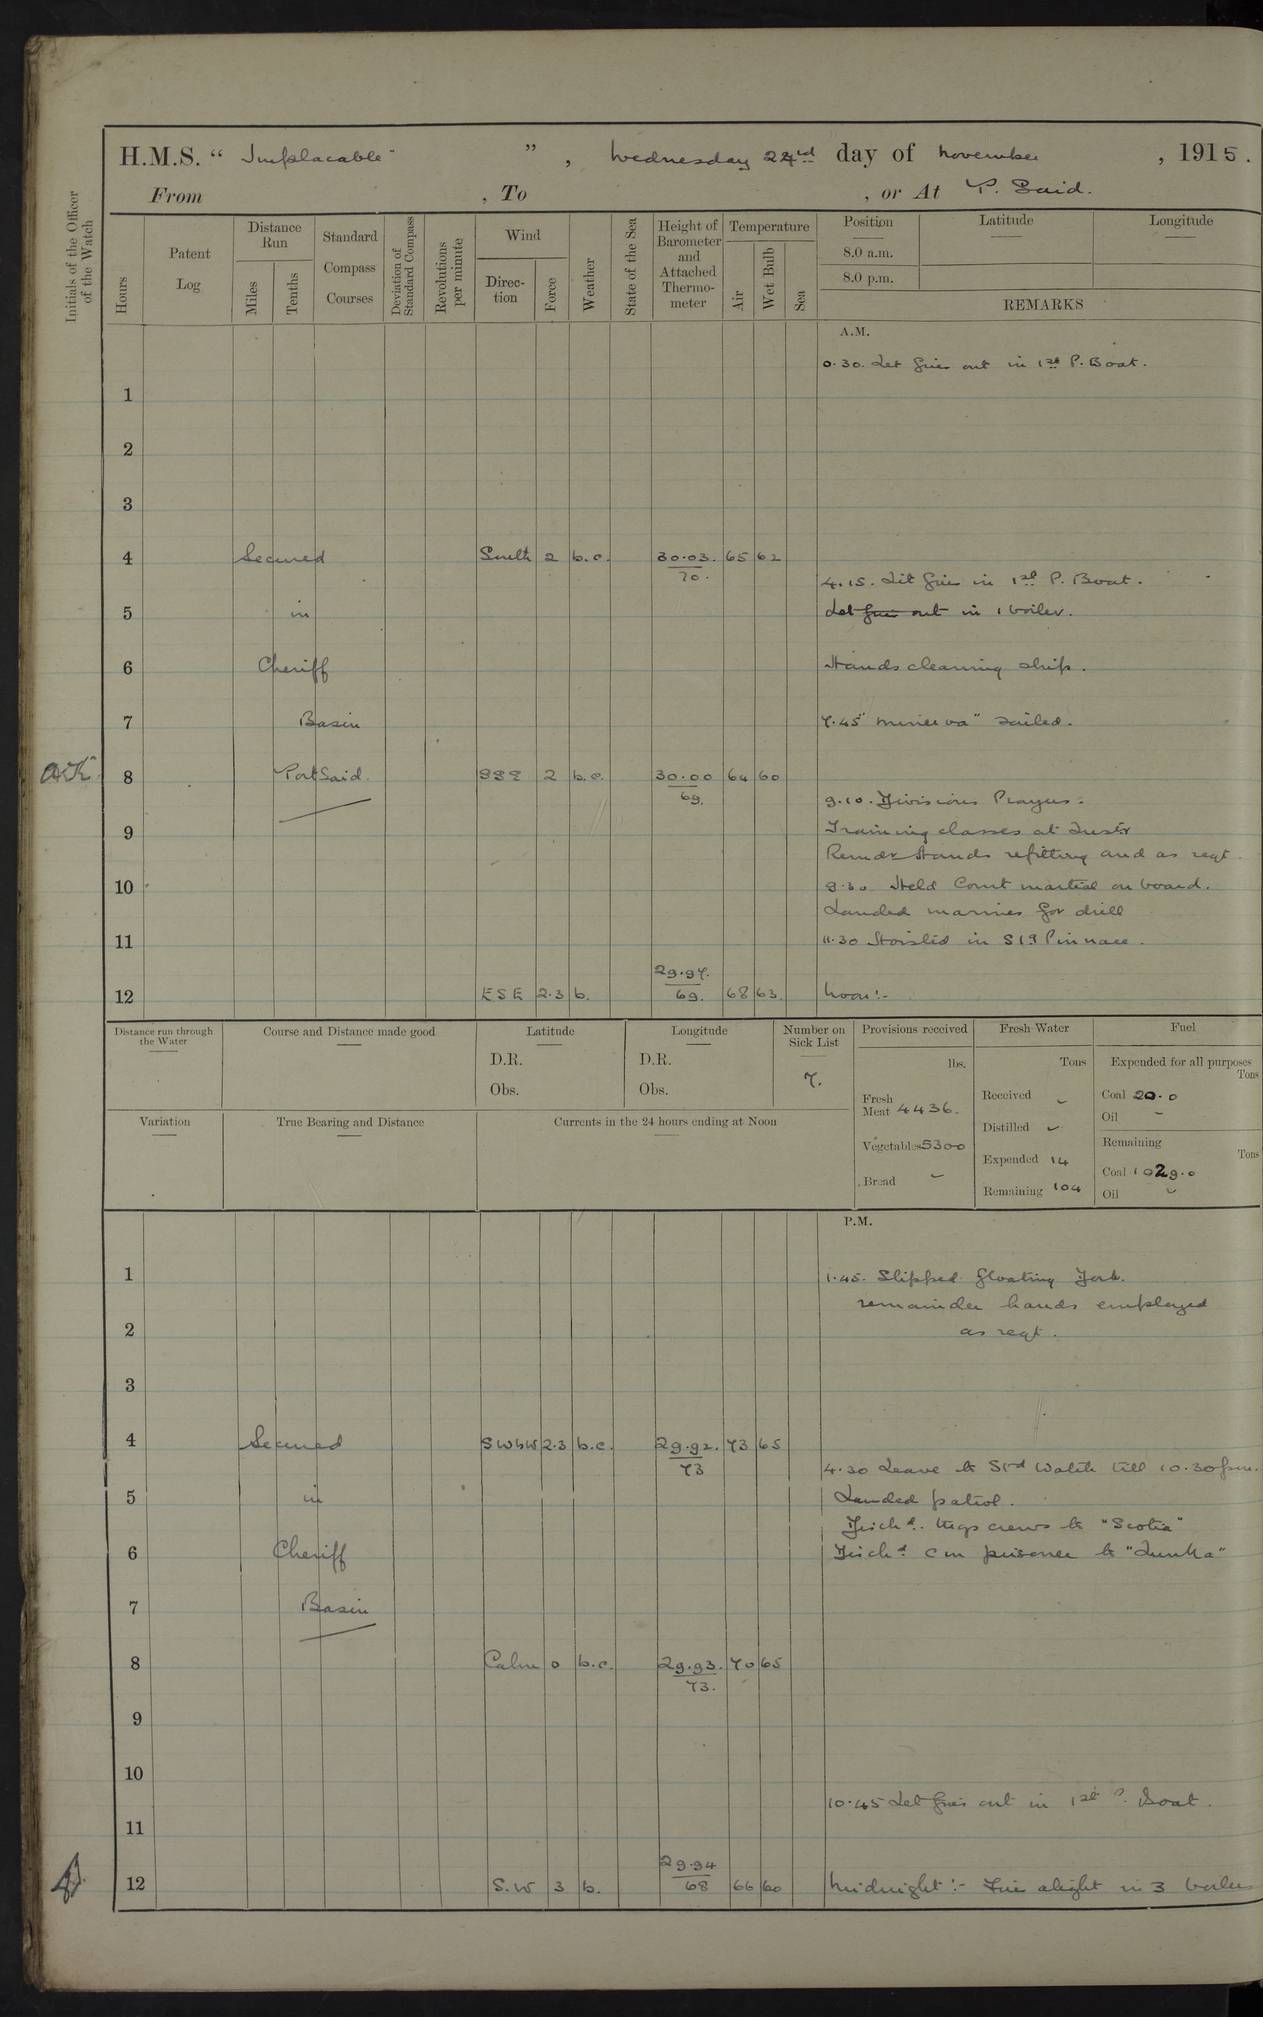 H.M.S. “ Implacable ” , Wednesday 24rd day of November , 1915.
From , To , or At P. Said.
Initials of the Officer of the Watch
Hours
Patent Log
Distance Run
Miles
Tenths
Standard Compass Courses
Deviation of Standard Compass
Revolutions per minute
Wind
Direction
Force
Weather
State of the Sea
Height of Barometer and Attached Thermometer
Temperature
Air
Wet Bulb
Sea
Position
8.0 a.m.
8.0 p.m.
Latitude
Longitude
REMARKS
A.M.
0.30. Let fires out in 1st P. Boat.
1
2
3
4 Secured South 2 b.c. 30.03. 65 62
70.
4.15. Lit fires in 1st P. Boat.
5 in Let fires out in 1 boiler.
6 Cheriff Hands cleaning ship.
7 Basin 7.45 "Minerva" sailed.
8 Port Said. SSE 2 b.c. 30.00 64 60
69.
9.10. Divisions Prayers.
9 Training classes at Instr
Remdr Hands refitting and as reqt.
10 9.30 Held Court martial on board.
Landed marines for drill
11 11.30 Hoisted in Stg Pinnace.
29.97.
12 ESE 2.3 b. 69. 68 63. Noon:-
Distance run through the Water
Course and Distance made good
Latitude
D.R.
Obs.
Longitude
D.R.
Obs.
Number on Sick List
7.
Provisions received
lbs.
Fresh Meat 4436.
Vegetables 5300
Bread -
Fresh Water
Tons
Received -
Distilled -
Expended 14
Remaining 104
Fuel
Expended for all purposes
Tons
Coal 20.0
Oil -
Remaining
Tons
Coal 1029.0
Oil -
Variation
True Bearing and Distance
Currents in the 24 hours ending at Noon
P.M.
1 1.45. Slipped floating
remainder hands employed
2 as reqt.
3
4 Secured SWbW 2.3 b.c. 29.92. 73 65
73
4.30 Leave to Stbd Watch till 10.30pm.
5 in Landed patrol.
Disch.d. crews to "Scotia"
6 Cheriff Disch.d. C M prisoner to
7 Basin
8 Calm 0 b.c. 29.93. 70 65
73.
9
10
10.45 Let fires out in 1st P. Boat.
11
29.94
12 S.W 3 b. 68 66 60 Midnight:- Fires alight in 3 boilers